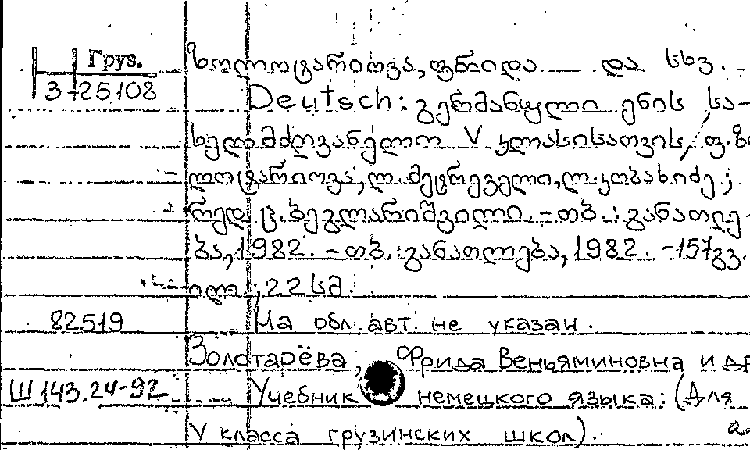 Груз.
3-25108
ზოლოტარიოვა, ფრიდა და სხვ.
Deutsch: გერმანული ენის სა-
ხელმძღვანელო V კლასისათვის, ფ. ზო
ლოტარიოვა, ლ. მეტრეველი, ლ. კობახიძე;
რედ. ც. ბეგლარიშვილი. - თბ.: განათლე-
ბა, 1982. - თბ. განათლება, 1982. - 157 გვ.
ილ.; 22 სმ.
82519 На обл. авт. не указан.
Золотарёва, Фрида Веньяминовна и др
Ш 143.24-92 Учебник немецкого языка: (Для
V класса грузинских школ).